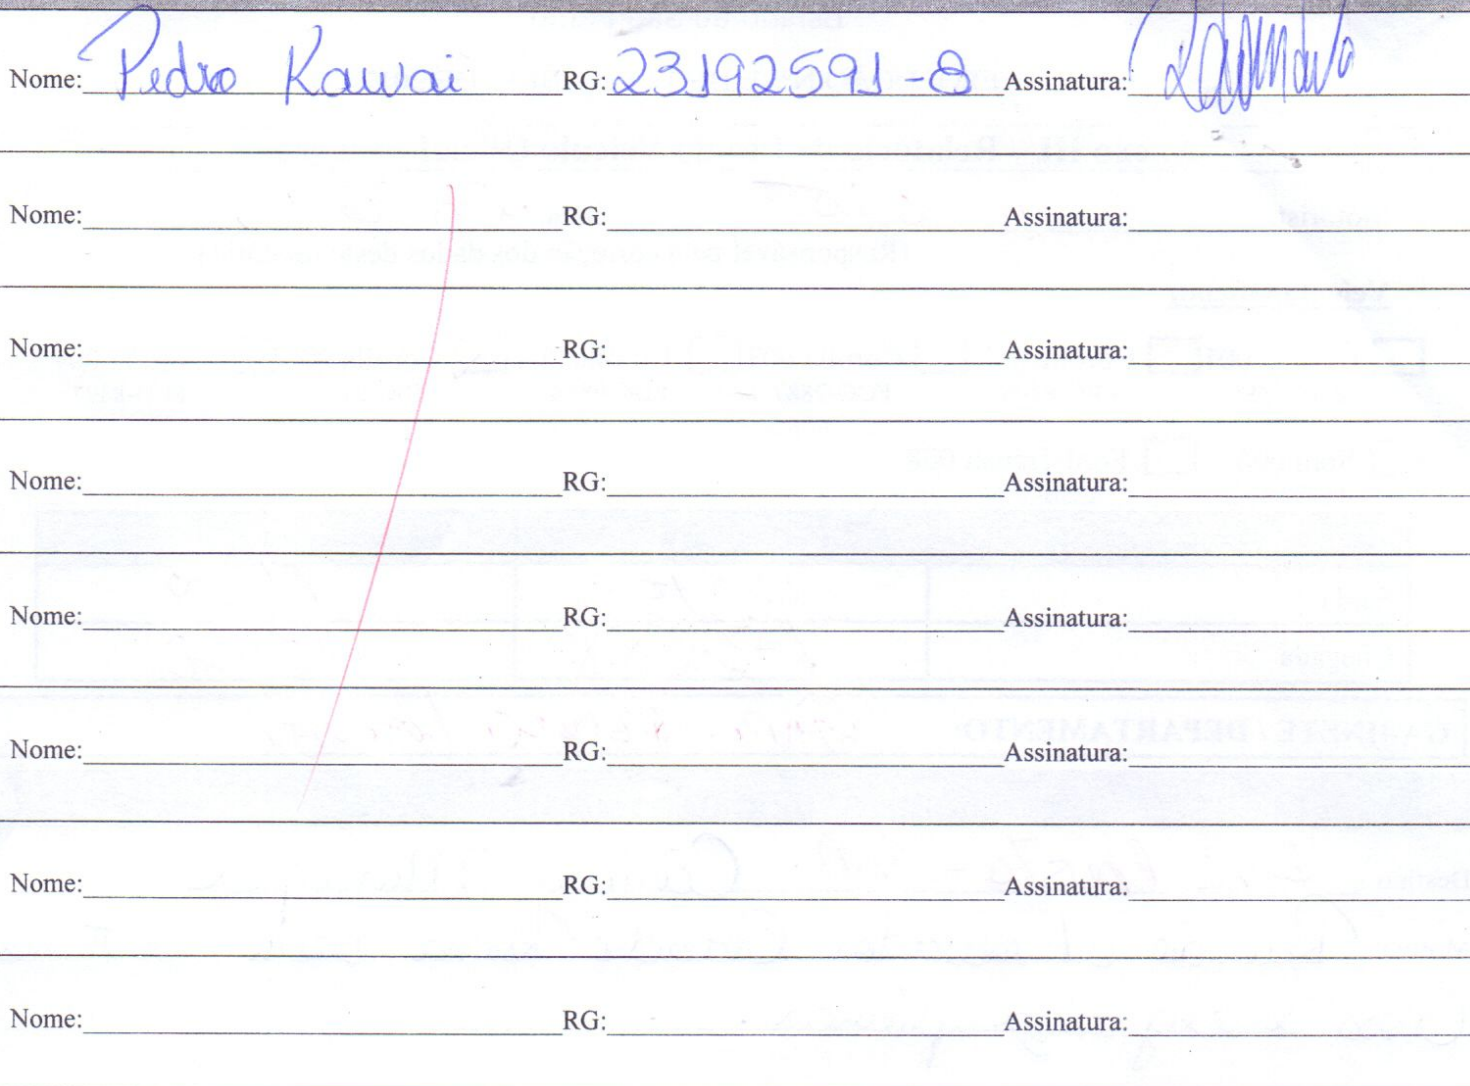 Nome: Pedro Kawai RG: 23192591-8 Assinatura:
Nome: RG: Assinatura:
Nome: RG: Assinatura:
Nome: RG: Assinatura:
Nome: RG: Assinatura:
Nome: RG: Assinatura:
Nome: RG: Assinatura:
Nome: RG: Assinatura: